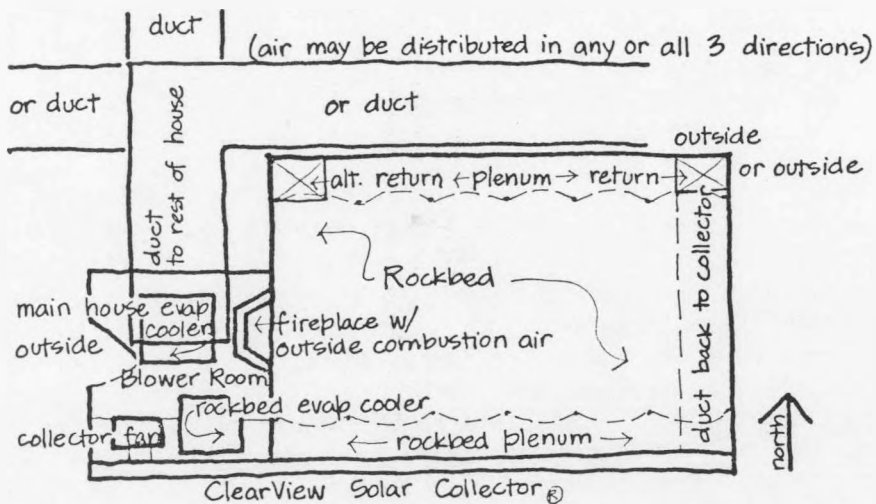 duct
(air may be distributed in any or all 3 directions)
or duct
or duct
duct
to rest of house
outside
or outside
alt. return ← plenum → return
Rockbed
duct back to collector
main house evap
cooler
outside
fireplace w/
outside combustion air
Blower Room
rockbed evap cooler
collector fan
← rockbed plenum →
north
ClearView Solar Collector ®